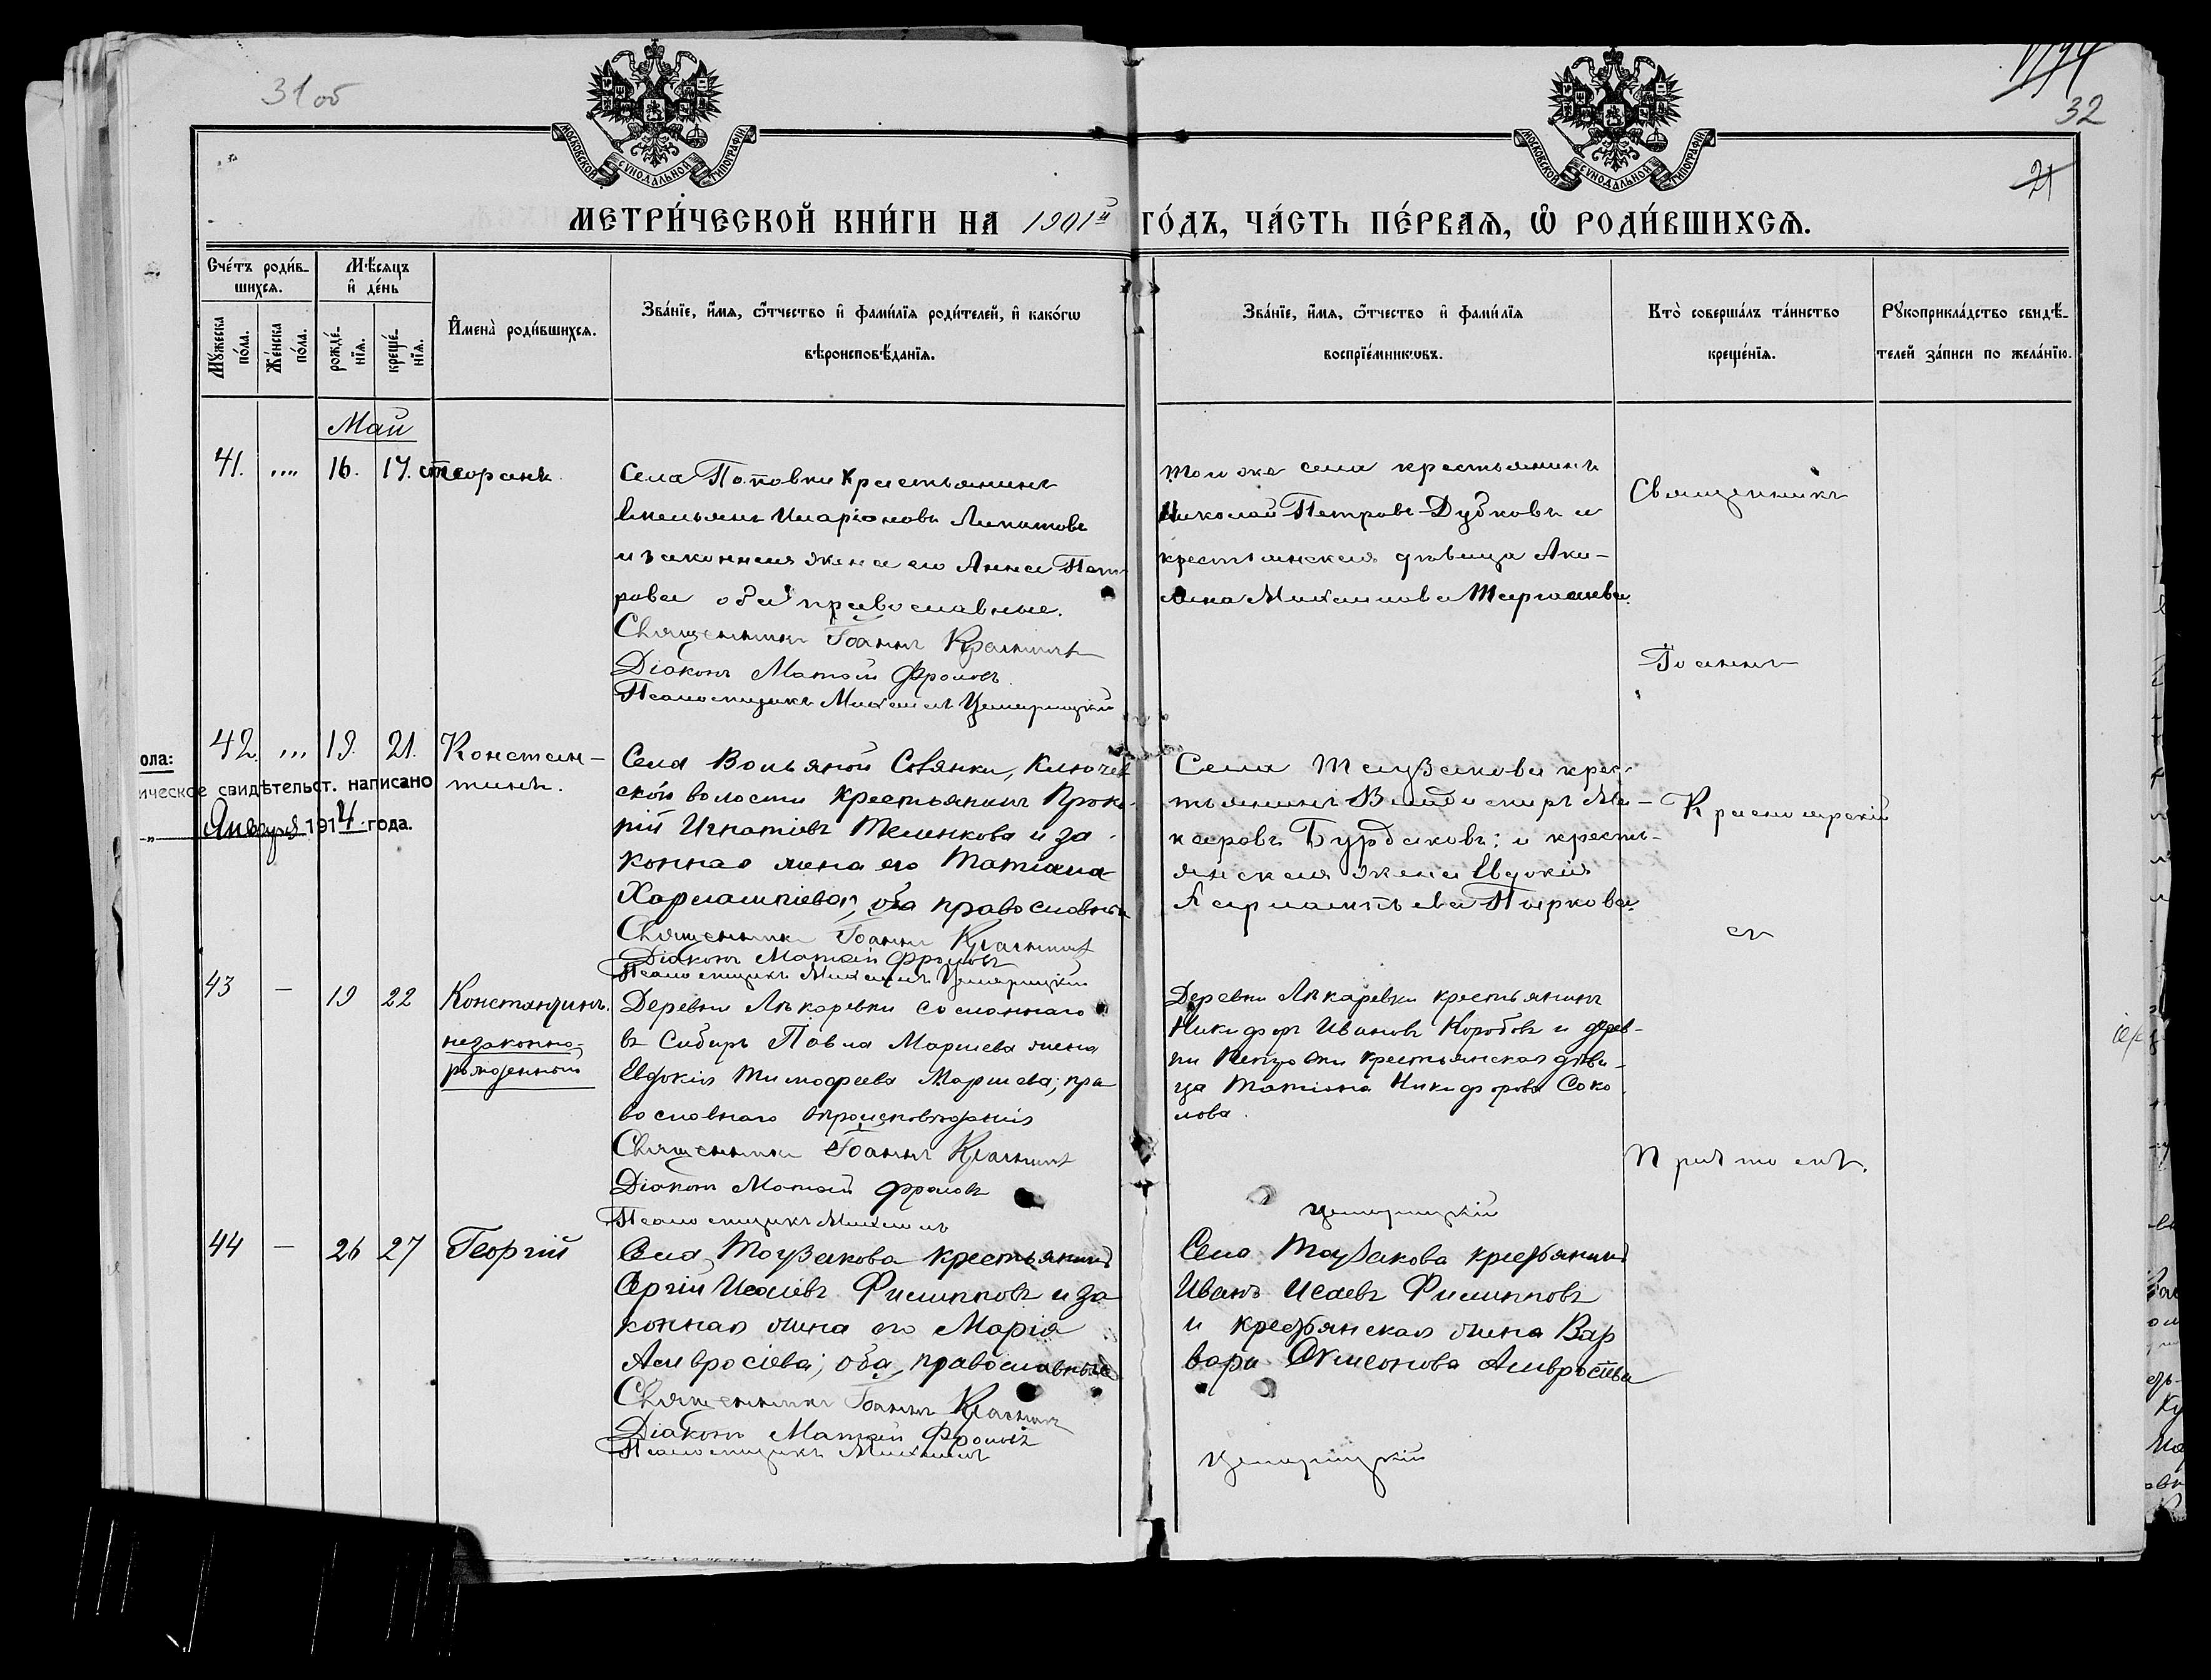 31 об
32
21
МОСКОВСКОЙ СѴНОДАЛЬНОЙ ТИПОГРАФІИ
МОСКОВСКОЙ СѴНОДАЛЬНОЙ ТИПОГРАФІИ
МЕТРИ́ЧЕСКОЙ КНИ́ГИ НА 1901й ГО́ДЪ, ЧА́СТЬ ПЕ́РВАѦ, Ѽ РОДИ́ВШИХСѦ.
Сче́тъ роди́в-
шихсѧ.
Мꙋ́жеска по́ла.
Же́нска по́ла.
Мѣ́сѧцъ
и҆ де́нь
рожде́-
нїѧ.
креще́-
нїѧ.
И҆мена̀ роди́вшихсѧ.
Зва́нїе, и҆́мѧ, ѻ҆́тчество и҆ фами́лїѧ роди́телей, и҆ како́гѡ
вѣроисповѣ́данїѧ.
Зва́нїе, и҆́мѧ, ѻ҆́тчество и҆ фами́лїѧ
воспрїе́мникѡвъ.
Кто̀ соверша́лъ та́инство
креще́нїѧ.
Рꙋкоприкла́дство свидѣ́-
телей за́писи по жела́нїю.
Май
41. .... 16. 17.
Села Поповки Крестьянинъ
Емельянъ Иларіоновъ Липатовъ
и законная жена его Анна Пет-
рова оба православные.
Священникъ Іоаннъ
Діаконъ Матѳій Фроловъ
Псаломщикъ Михаилъ
Того же села крестьянинъ
Николай Петровъ Дубковъ и
крестьянская дѣвица Аки-
лина Михаилова
Священникъ
Іоаннъ
42. ... 19. 21. Констан-
тинъ.
Села Вольяной Совянки, Ключев
ской волости Крестьянинъ Проко-
рій Игнатіевъ Теленкова и за-
конная жена его Татіана
Харлампіева, оба православныя
Священникъ Іоаннъ
Діаконъ Матѳій Фроловъ
Псаломщикъ Михаилъ
Села Таузакова крес-
тьянинъ Владиміръ Ма-
каровъ Бурдаковъ; и кресть-
янская жена Евдокія
Харлампіева
ола:
ическое свидѣтельст. написано
„ Января 1914 года.
43 — 19 22 Константинъ.
незаконно-
рожденный
Деревни Лѣкаревки сосланнаго
въ Сибирь Павла Маршева жена
Евдокія Тимофеева Маршева; пра
вославнаго вѣроисповѣданія
Священникъ Іоаннъ
Діаконъ Матѳій Фроловъ
Псаломщикъ Михаилъ
Деревни Лѣкаревки крестьянинъ
Никифоръ Ивановъ Коробовъ и дерев-
ни крестьянская дѣви-
ца Татіана Никифорова Соко
лова.
44 — 26 27 Георгій
Села Таузакова крестьянинъ
Сергій Исаіевъ Филипповъ и за
конная жена его Марія
Амвросіева; оба православные
Священникъ Іоаннъ
Діаконъ Матѳій Фроловъ
Псаломщикъ Михаилъ
Села Таузакова крестьянинъ
Иванъ Исаевъ Филипповъ
и крестьянская жена Вар
вара